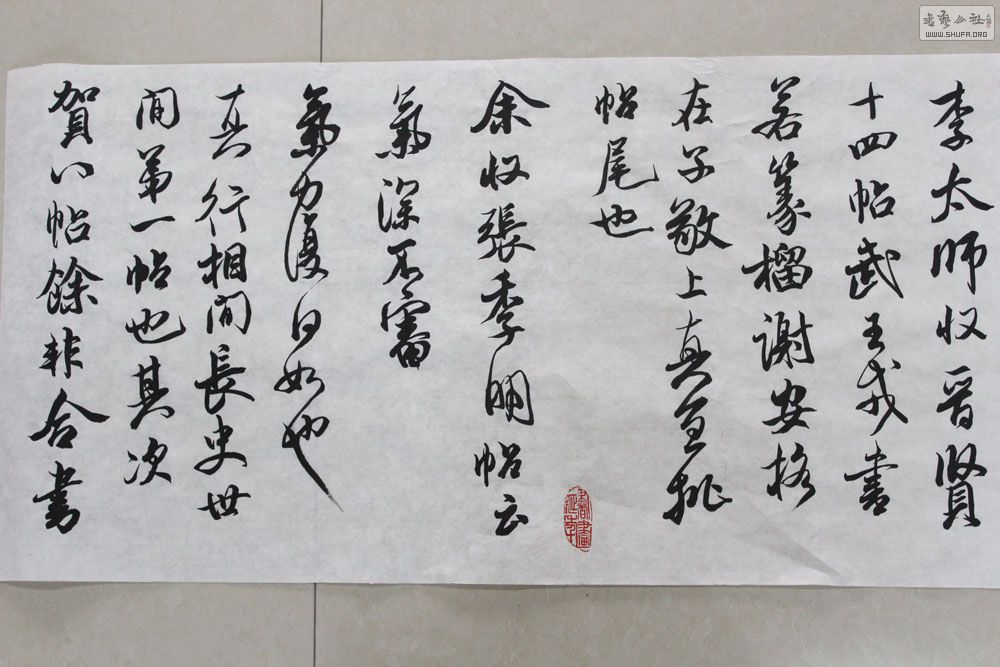 李太師收晉賢
十四帖武王戎書
若篆榴謝安格
在子敬上真宜批
帖尾也
余收張季明帖云
氣深不審
氣力復何如也
真行相間長史世
間第一帖也其次
賀八帖餘非合書
書藝公社
WWW.SHUFA.ORG